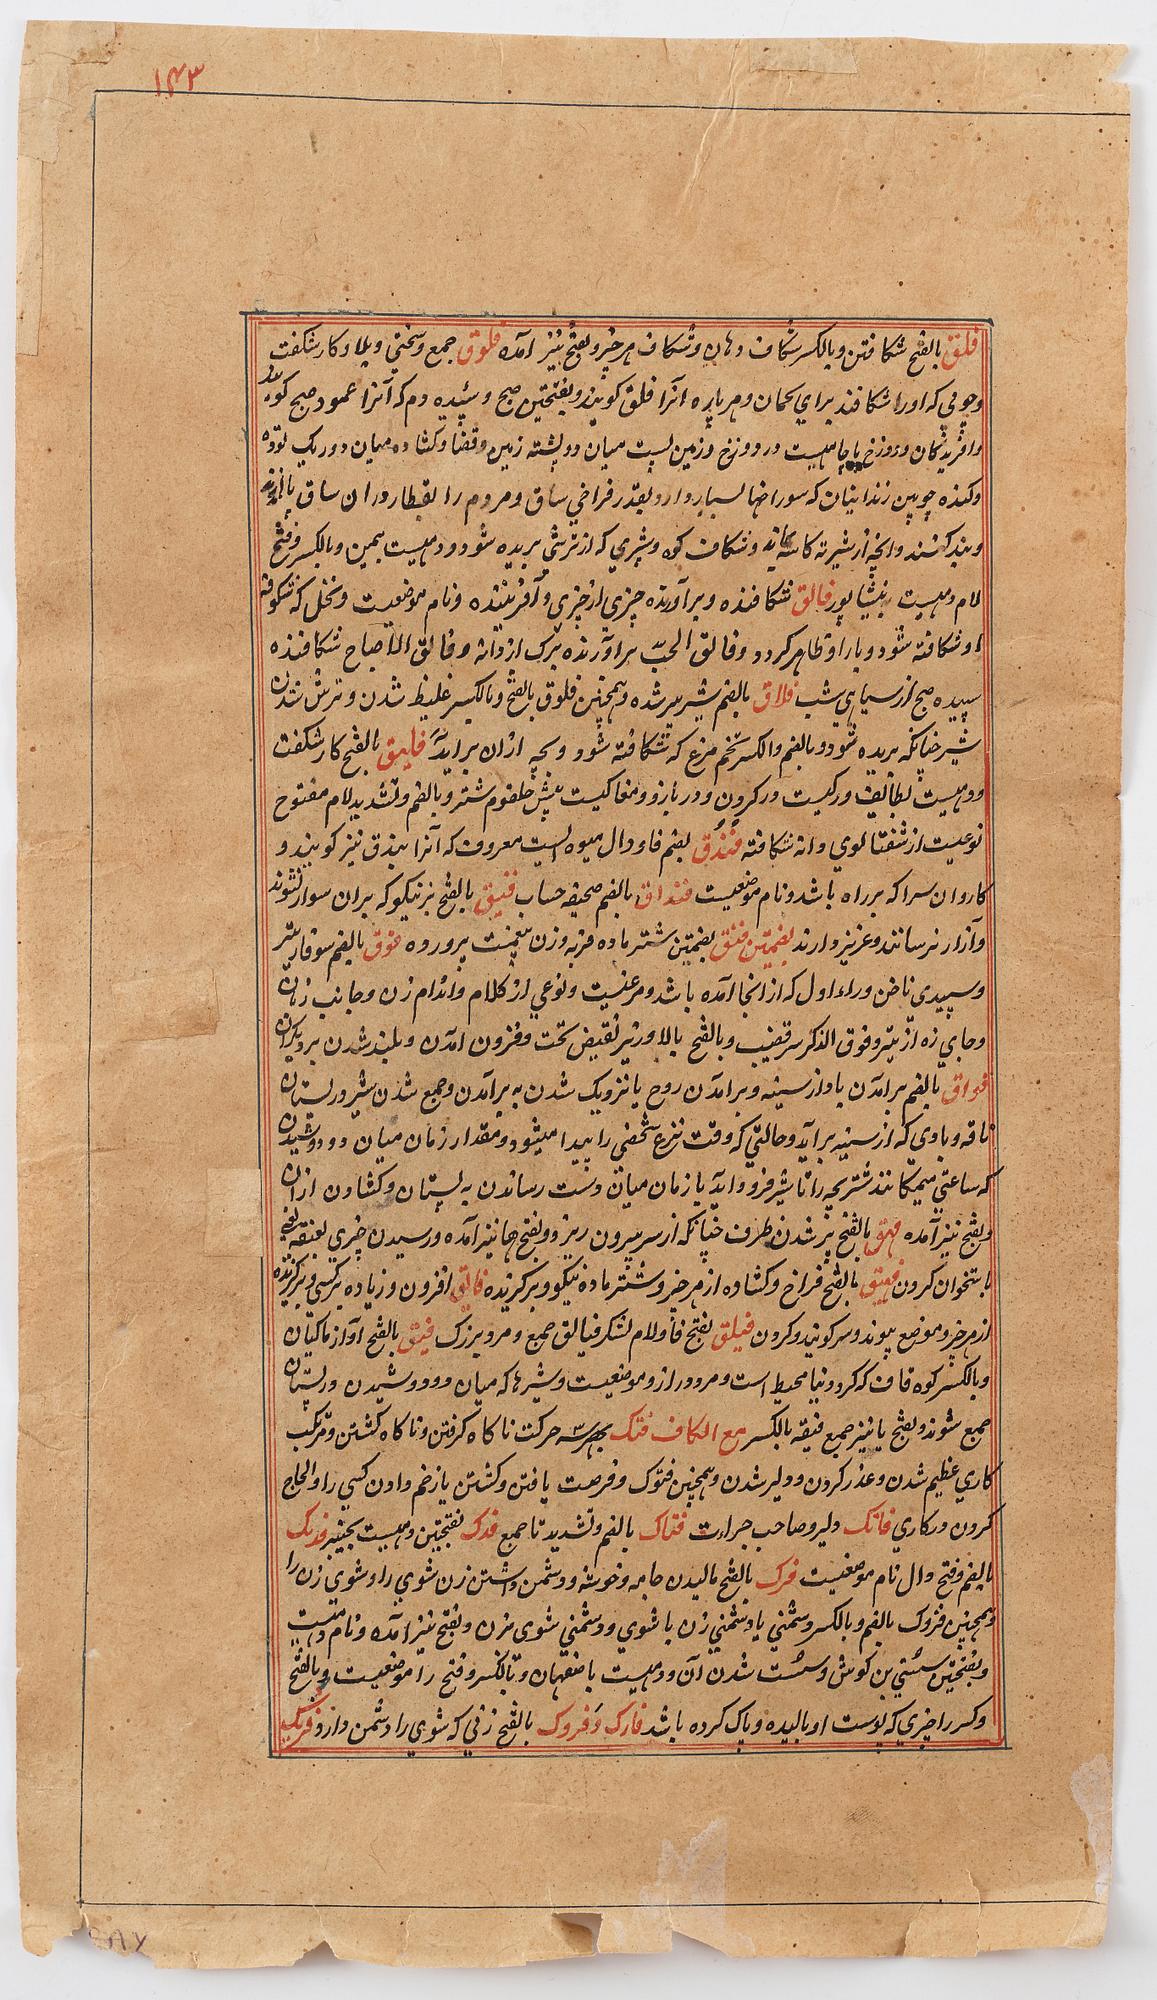 ۱۴۳
فلق بالفتح شکافتن و بالکسر شکاف دهان و شکاف هر چیز و بفتح نیز آمده فلوق جمع و سختی و بلا و کار شکفت
و چوبی که اورا شکافند برای کمان و هر پاره آنرا فلق کویند و بفتحتین صبح و سپیده دم که آنرا عمود صبح کویند
و آفریدکان و دوزخ یا چاهیست در دوزخ و زمین پست میان دو پشته زمین و فضا و کشاده میان دو ریک توده
و کنده چوبین زندانیان که سوراخها بسیار دارد بقدر فراخی ساق و مردم را بقطار دران ساق
و بند کنند و انچه از شیر ته کاسه ماند و شکاف کوه و شیری که از ترشی بریده شود و دهیست بیمن و بالکسر و فتح
لام دهیست بنیشاپور فالق شکافنده و برآورنده چیزی از چیزی و آفریننده و نام موضعیت و نخل که شکوفه
او شکافته شود و بار او ظاهر کردد و فالق الحبّ برآورنده برک از دانه و فالق الاصباح شکافنده
سپیده صبح از سیاهی شب فلاق بالضم شیر بریده شده و همچنین فلوق بالفتح و بالکسر غلیظ شدن و ترش شدن
شیر چنانکه بریده شود و بالضم والکسر تخم مرغ که شکافته شود و بچه ازان برآید فلیق بالفتح کار شکفت
و دهیست بطائف و رکیست در کردن و در بازو و مغاکیست پیش حلقوم شتر و بالضم و تشدید لام مفتوح
نوعیت از شفتالوی دانه شکافته فندق بضم فا و دال میوه ایست معروف که آنرا بندق نیز کویند و
کاروان سرا که بر راه باشد و نام موضعیت فنداق بالضم صحیفه حساب فنیق بالفتح بز نیکو که بران سوار نشوند
و آزار نرسانند و عزیز دارند بضمتین فنق بضمتین شتر ماده فربه و زن بنعمت پرورده فوق بالضم سوفار تیر
و سپیدی ناخن و راه اول که از انجا آمده باشد و مرغیست و نوعی از کلام و اندام زن و جانب زبان
و جای زه از تیر و فوق الذکر سر قضیب و بالفتح بالا و زبر نقیض تحت و فزون آمدن و بلند شدن بر دیکران
فواق بالضم برآمدن باد از سینه و برآمدن روح یا نزدیک شدن به برآمدن و جمع شدن شیر در پستان
ناقه و بادی که از سینه برآید و حالتی که وقت نزع شخصی را پیدا میشود و مقدار زمان میان دو دوشیدن
که ساعتی میمکانند شتر بچه را تا شیر فرود آید یا زمان میان دست رساندن به پستان و کشادن ازان
و بفتح نیز آمده فهق بالفتح پر شدن ظرف چنانکه از سر بیرون ریزد و بفتح ها نیز آمده و رسیدن چیزی
باستخوان کردن فهیق بالفتح فراخ و کشاده از هر چیز و شتر ماده نیکو و برکزیده فائق افزون و زیاده بر کسی و برکزیده
از هر چیز و موضع پیوند و سر کویند و کردن فیلق بفتح فا و لام لشکر فیالق جمع و مرد بزرک فیق بالفتح آواز ماکیان
و بالکسر کوه قاف که کرد دنیا محیط است و مرد دراز و موضعیت و شیرها که میان دو دوشیدن در پستان
جمع شوند و بفتح یا نیز جمع فیقه بالکسر مع الکاف فتک بهر سه حرکت ناکاه کرفتن و ناکاه کشتن و مرتکب
کاری عظیم شدن و عذر کردن و دلیر شدن و همچنین فتوک و فرصت یافتن و کشتن یا زخم دادن کسی را و الحاح
کردن در کاری فاتک دلیر و صاحب جرات فتاک بالضم و تشدید تا جمع فدک بفتحتین دهیست بخیبر فدیک
بالضم و فتح دال نام موضعیست فرک بالفتح مالیدن جامه و خوشه و دشمن داشتن زن شوی را و شوی زن را
و همچنین فروک بالضم و بالکسر دشمنی یا دشمنی زن با شوی و دشمنی شوی بزن و بفتح نیز آمده و نام دهیست
و بفتحتین سستی بن کوش و سست شدن آن و دهیست باصفهان و بالکسر و فتح را موضعیت و بالفتح
و کسر را چیزی که پوست او مالیده و پاک کرده باشد فارک و فروک بالفتح زنی که شوی را دشمن دارد فریک